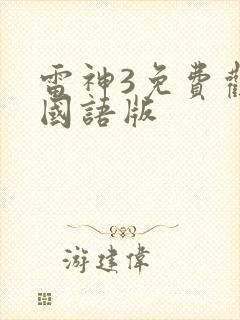 雷神3免費觀
國語版
游建偉